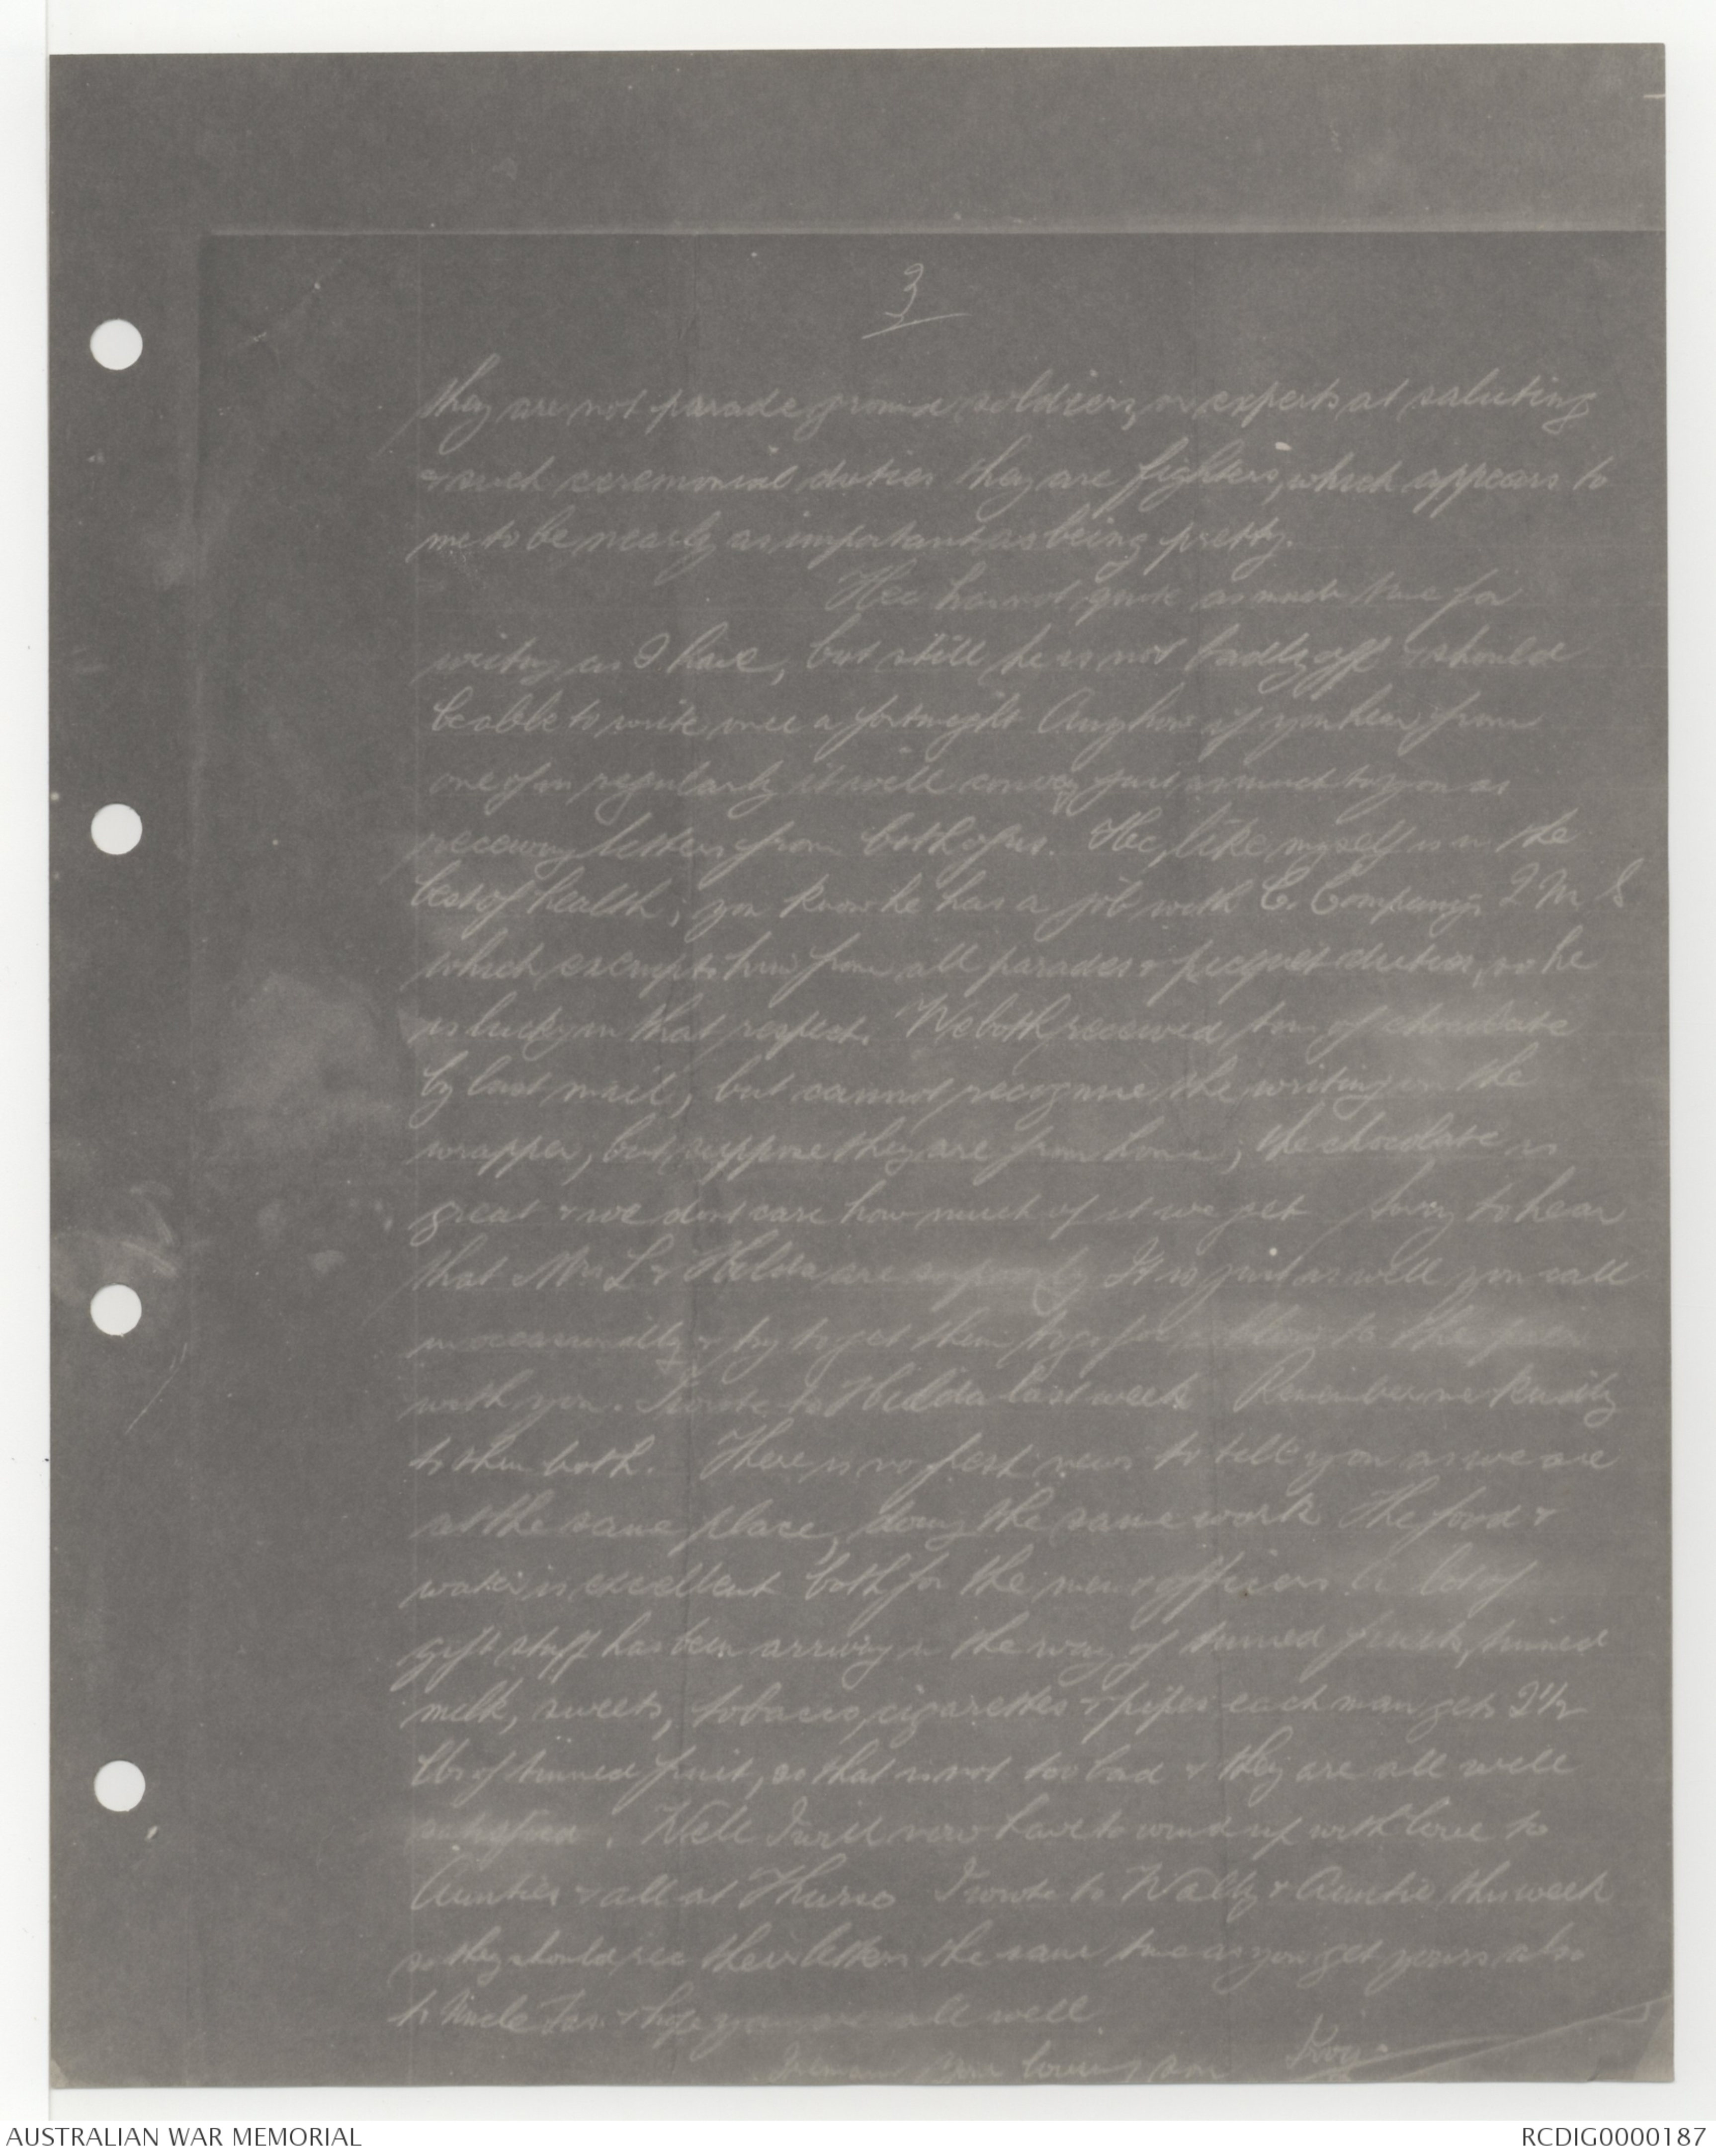 3
they are not parade ground soldiers, or experts at saluting
& such ceremonial duties they are fighters, which appears to
me to be nearly as important as being pretty.
Hec has not quite as much time for
writing as I have, but still he is not badly off & should
be able to write once a fortnight Anyhow if you hear from
one of us regularly it will convey just as much to you as
receiving letters from both of us. Hec, like myself is in the
best of health, you know he has a job with C. Company's Q M S
which exempts him from all parades & picquet duties, so he
is lucky in that respect. We both received tins of chocolate
by last mail, but cannot recognise the writing on the
wrapper, but suppose they are from home, the chocolate is
great & we dont care how much of it we get Sorry to hear
that Mrs L & Hilda are It is just as well you call
in occasionally & try to get them to go for to the
with you. I wrote to Hilda last week Remember me kindly
to them both. There is no fresh news to tell you as we are
at the same place, doing the same work The food &
water is excellent both for the men & officers A lot of
gift stuff has been arriving in the way of tinned fruits, tinned
milk, sweets, tobacco, cigarettes & pipes each man gets 2½
lbs of tinned fruit, so that is not too bad & they are all well
satisfied. Well I will now have to wind up with love to
Aunties & all at Thurso I wrote to Wally & Auntie this week
so they should rec their letters the same time as you get yours, also
to Uncle Jas. & hope you are all well
I remain Your loving son Roy.
AUSTRALIAN WAR MEMORIAL
RCDIG0000187